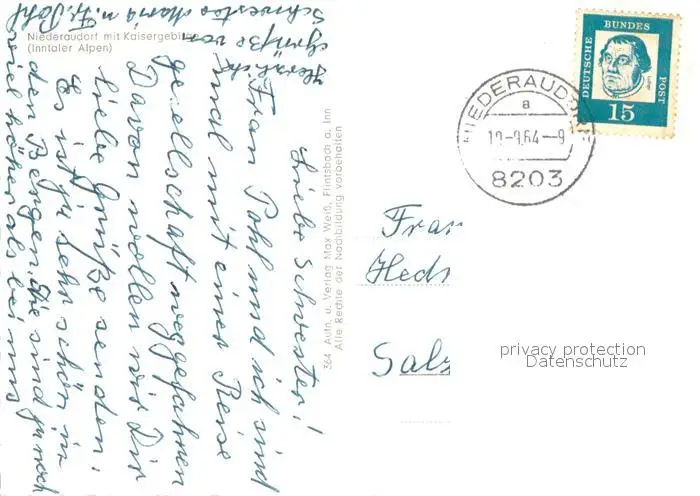 Niederaudorf mit Kaisergebirge
(Inntaler Alpen)
Liebe Schwester!
Frau Pohl und ich sind
mal mit einer Reise
gesellschaft weggefahren
Davon wollen wir Dir
liebe Grüße senden.
Es ist ja sehr schön in
den Bergen, die sind ja noch
viel höher als bei uns
Herzliche
Grüße von
Schwester Maria u. Fr. Pohl
364 Aufn. u. Verlag Max Weiß, Flintsbach a. Inn
Alle Rechte der Nachbildung vorbehalten
DEUTSCHE BUNDES POST
15
NIEDERAUDORF
a
64-9
8203
Frau
Hedw
Salz
privacy protection
Datenschutz